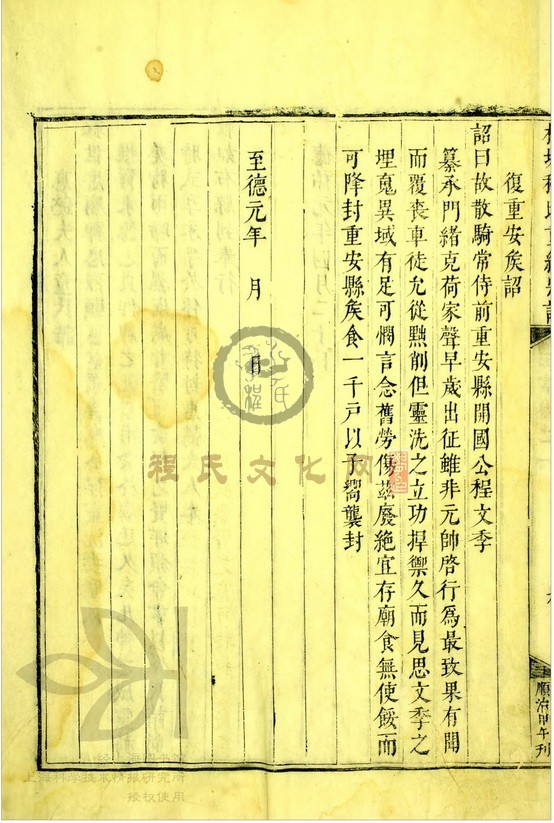 復重安矦詔
詔曰故散騎常侍前重安縣開國公程文季
纂承門緒克荷家聲早歲出征雖非元帥啓行爲最致果有聞
而覆喪車徒允從黜削但靈洗之立功捍禦久而見思文季之
埋䰟異域有足可憫言念舊勞傷茲廢絶宜存廟食無使餒而
可降封重安縣矦食一千戶以子嚮襲封
至德元年　月　日
順治甲午刊
程氏文化网
上海科学技术情报研究所
授权使用